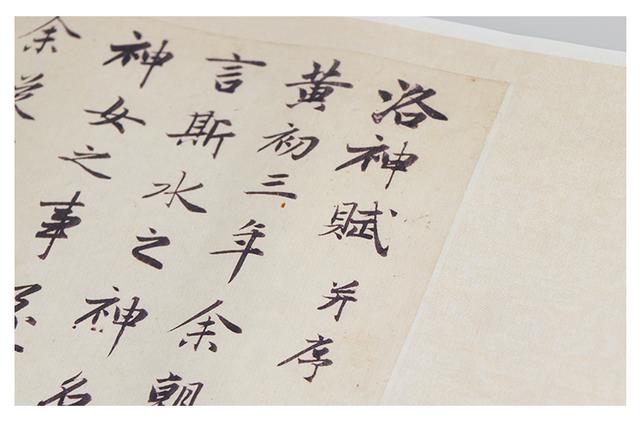 洛神賦并序
黄初三年余朝
言斯水之神名
神女之事
余